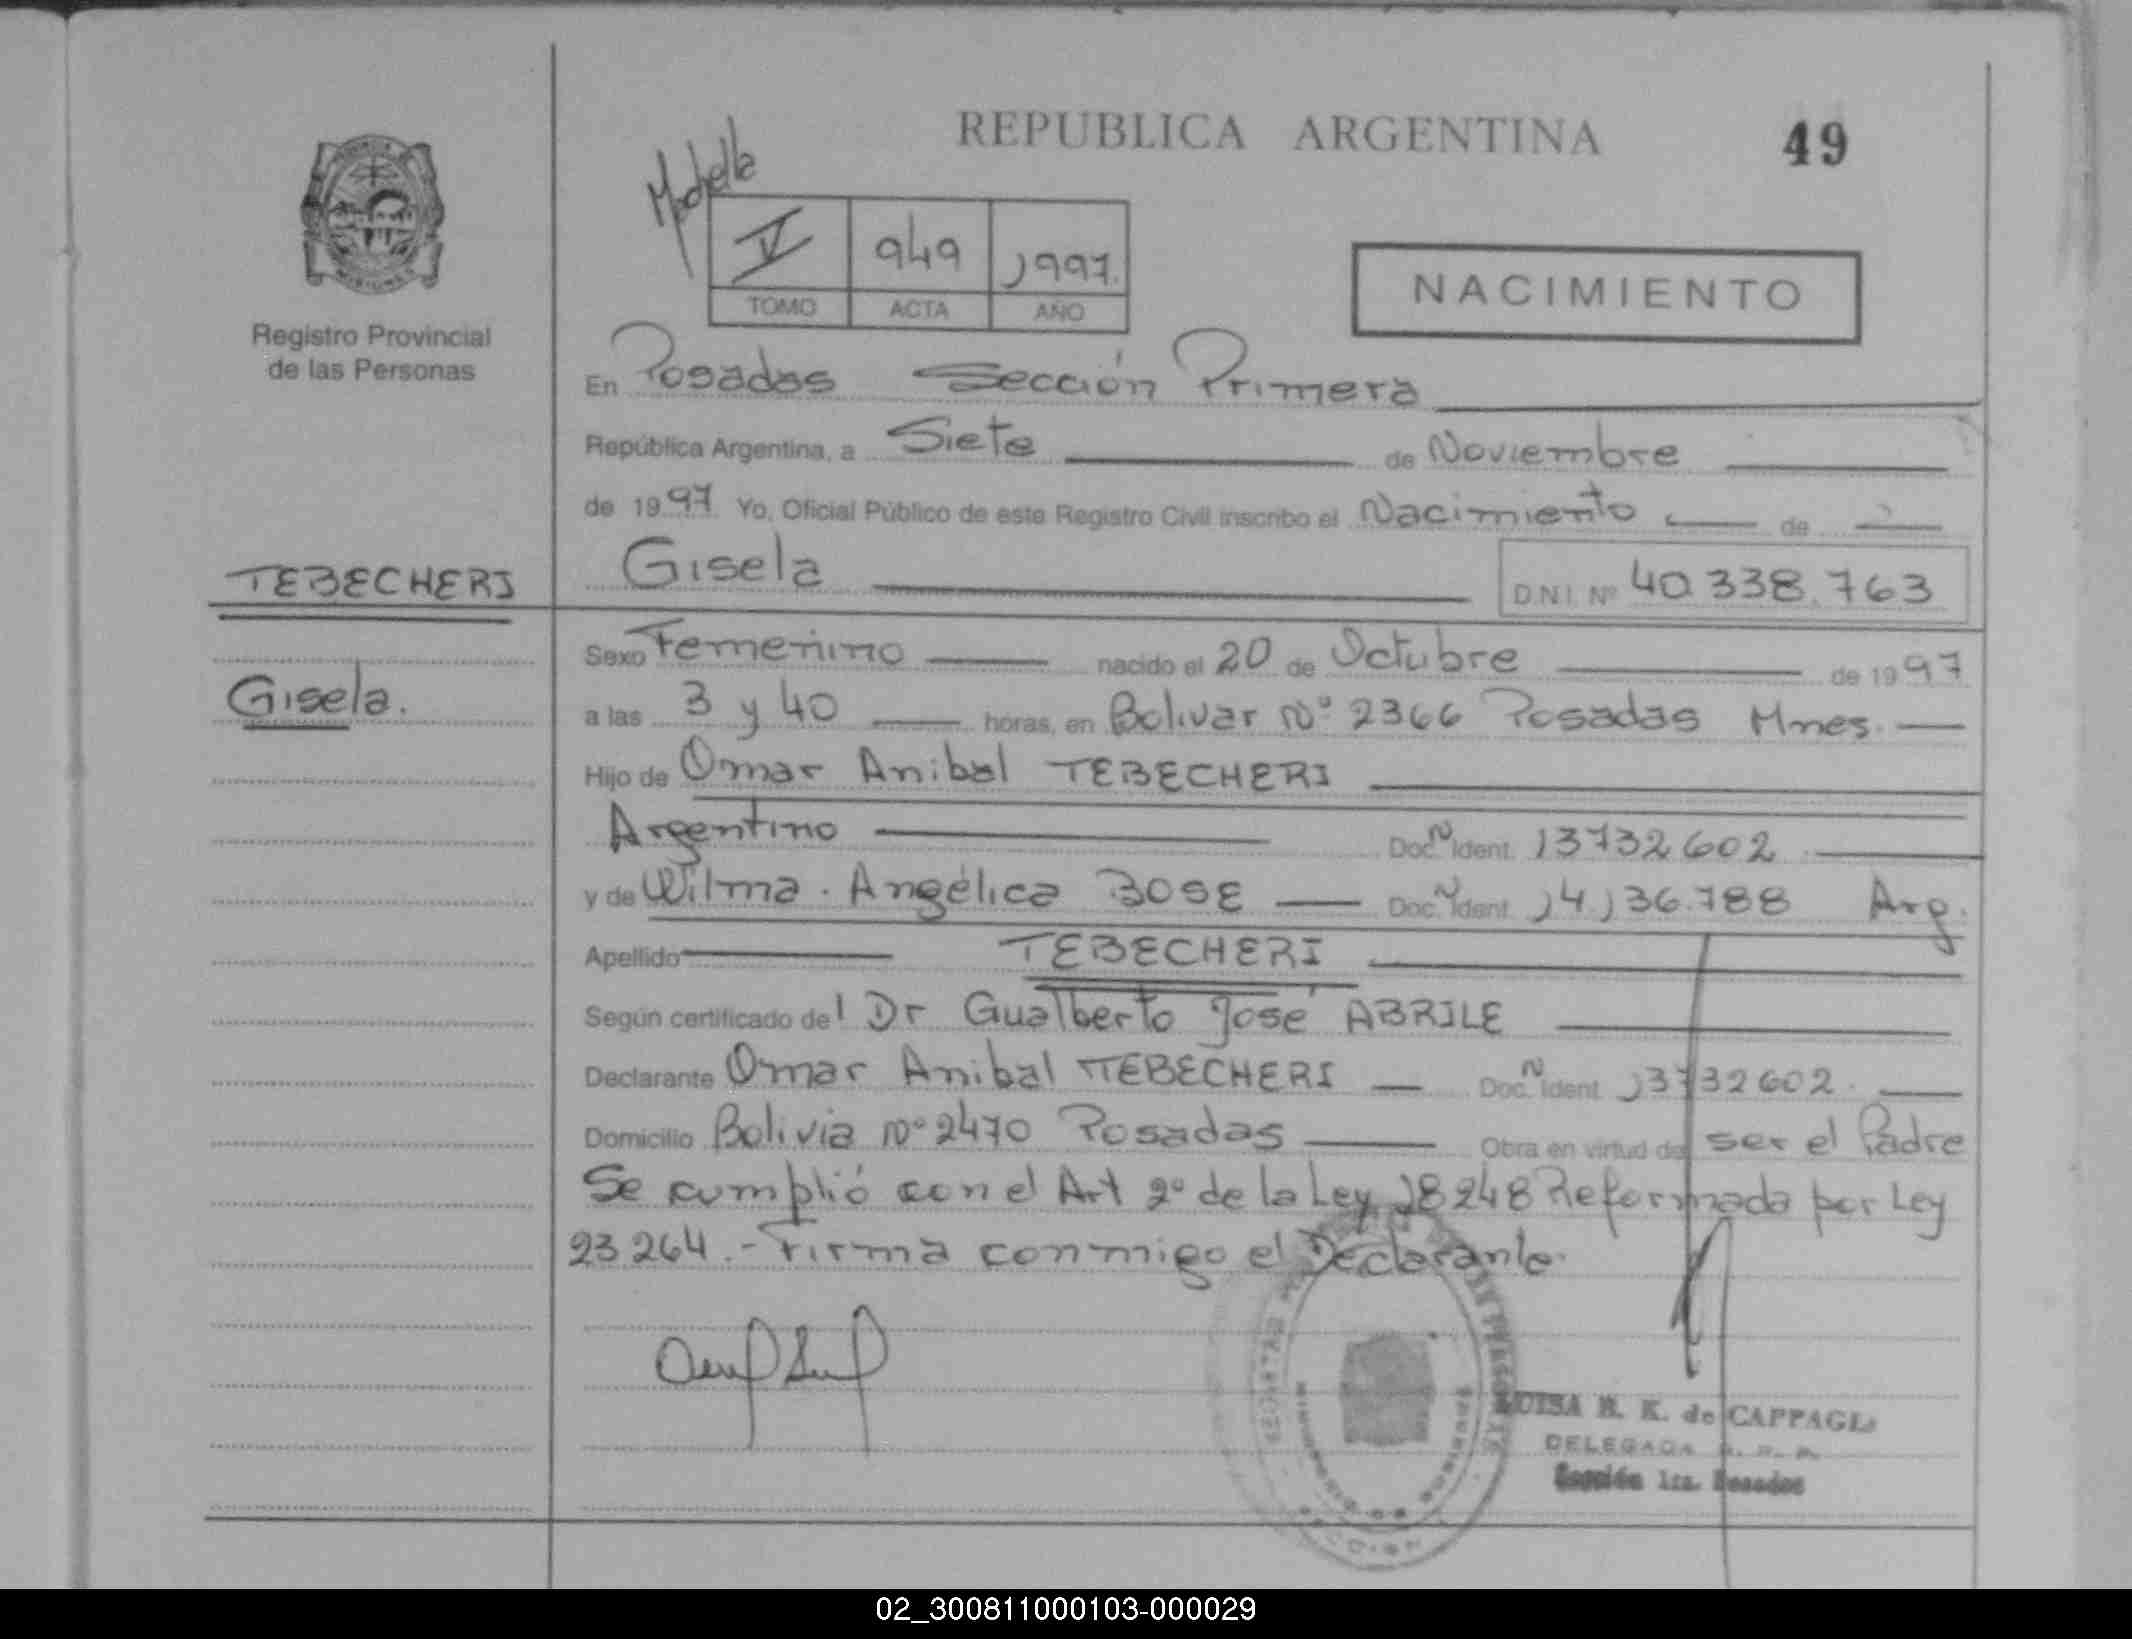 REPUBLICA ARGENTINA
49
V 949 1997.
TOMO ACTA AÑO
NACIMIENTO
Registro Provincial
de las Personas
En Posadas Sección Primera
República Argentina, a Siete de Noviembre
de 1997 Yo, Oficial Público de este Registro Civil inscribo el Nacimiento de
TEBECHERI
Gisela D.N.I. Nº 40.338.763
Gisela.
Sexo Femenino nacido el 20 de Octubre de 1997
a las 3 y 40 horas, en Bolivar Nº 2366 Posadas Mnes.
Hijo de Omar Anibal TEBECHERI
Argentino Doc. N Ident. 13732602
y de Wilma. Angélica BOSE Doc. N Ident. 14.136.788 Arg.
Apellido TEBECHERI
Según certificado del Dr Gualberto José ABRILE
Declarante Omar Anibal TEBECHERI Doc. N Ident. 13732602.
Domicilio Bolivia Nº 2470 Posadas Obra en virtud de ser el Padre
Se cumplió con el Art 2º de la Ley 18248 Reformada por Ley
23.264.- Firma conmigo el Declarante.
LUISA R. K. de CAPPAGLI
DELEGADA
Sección 1ra. Posadas
02_300811000103-000029